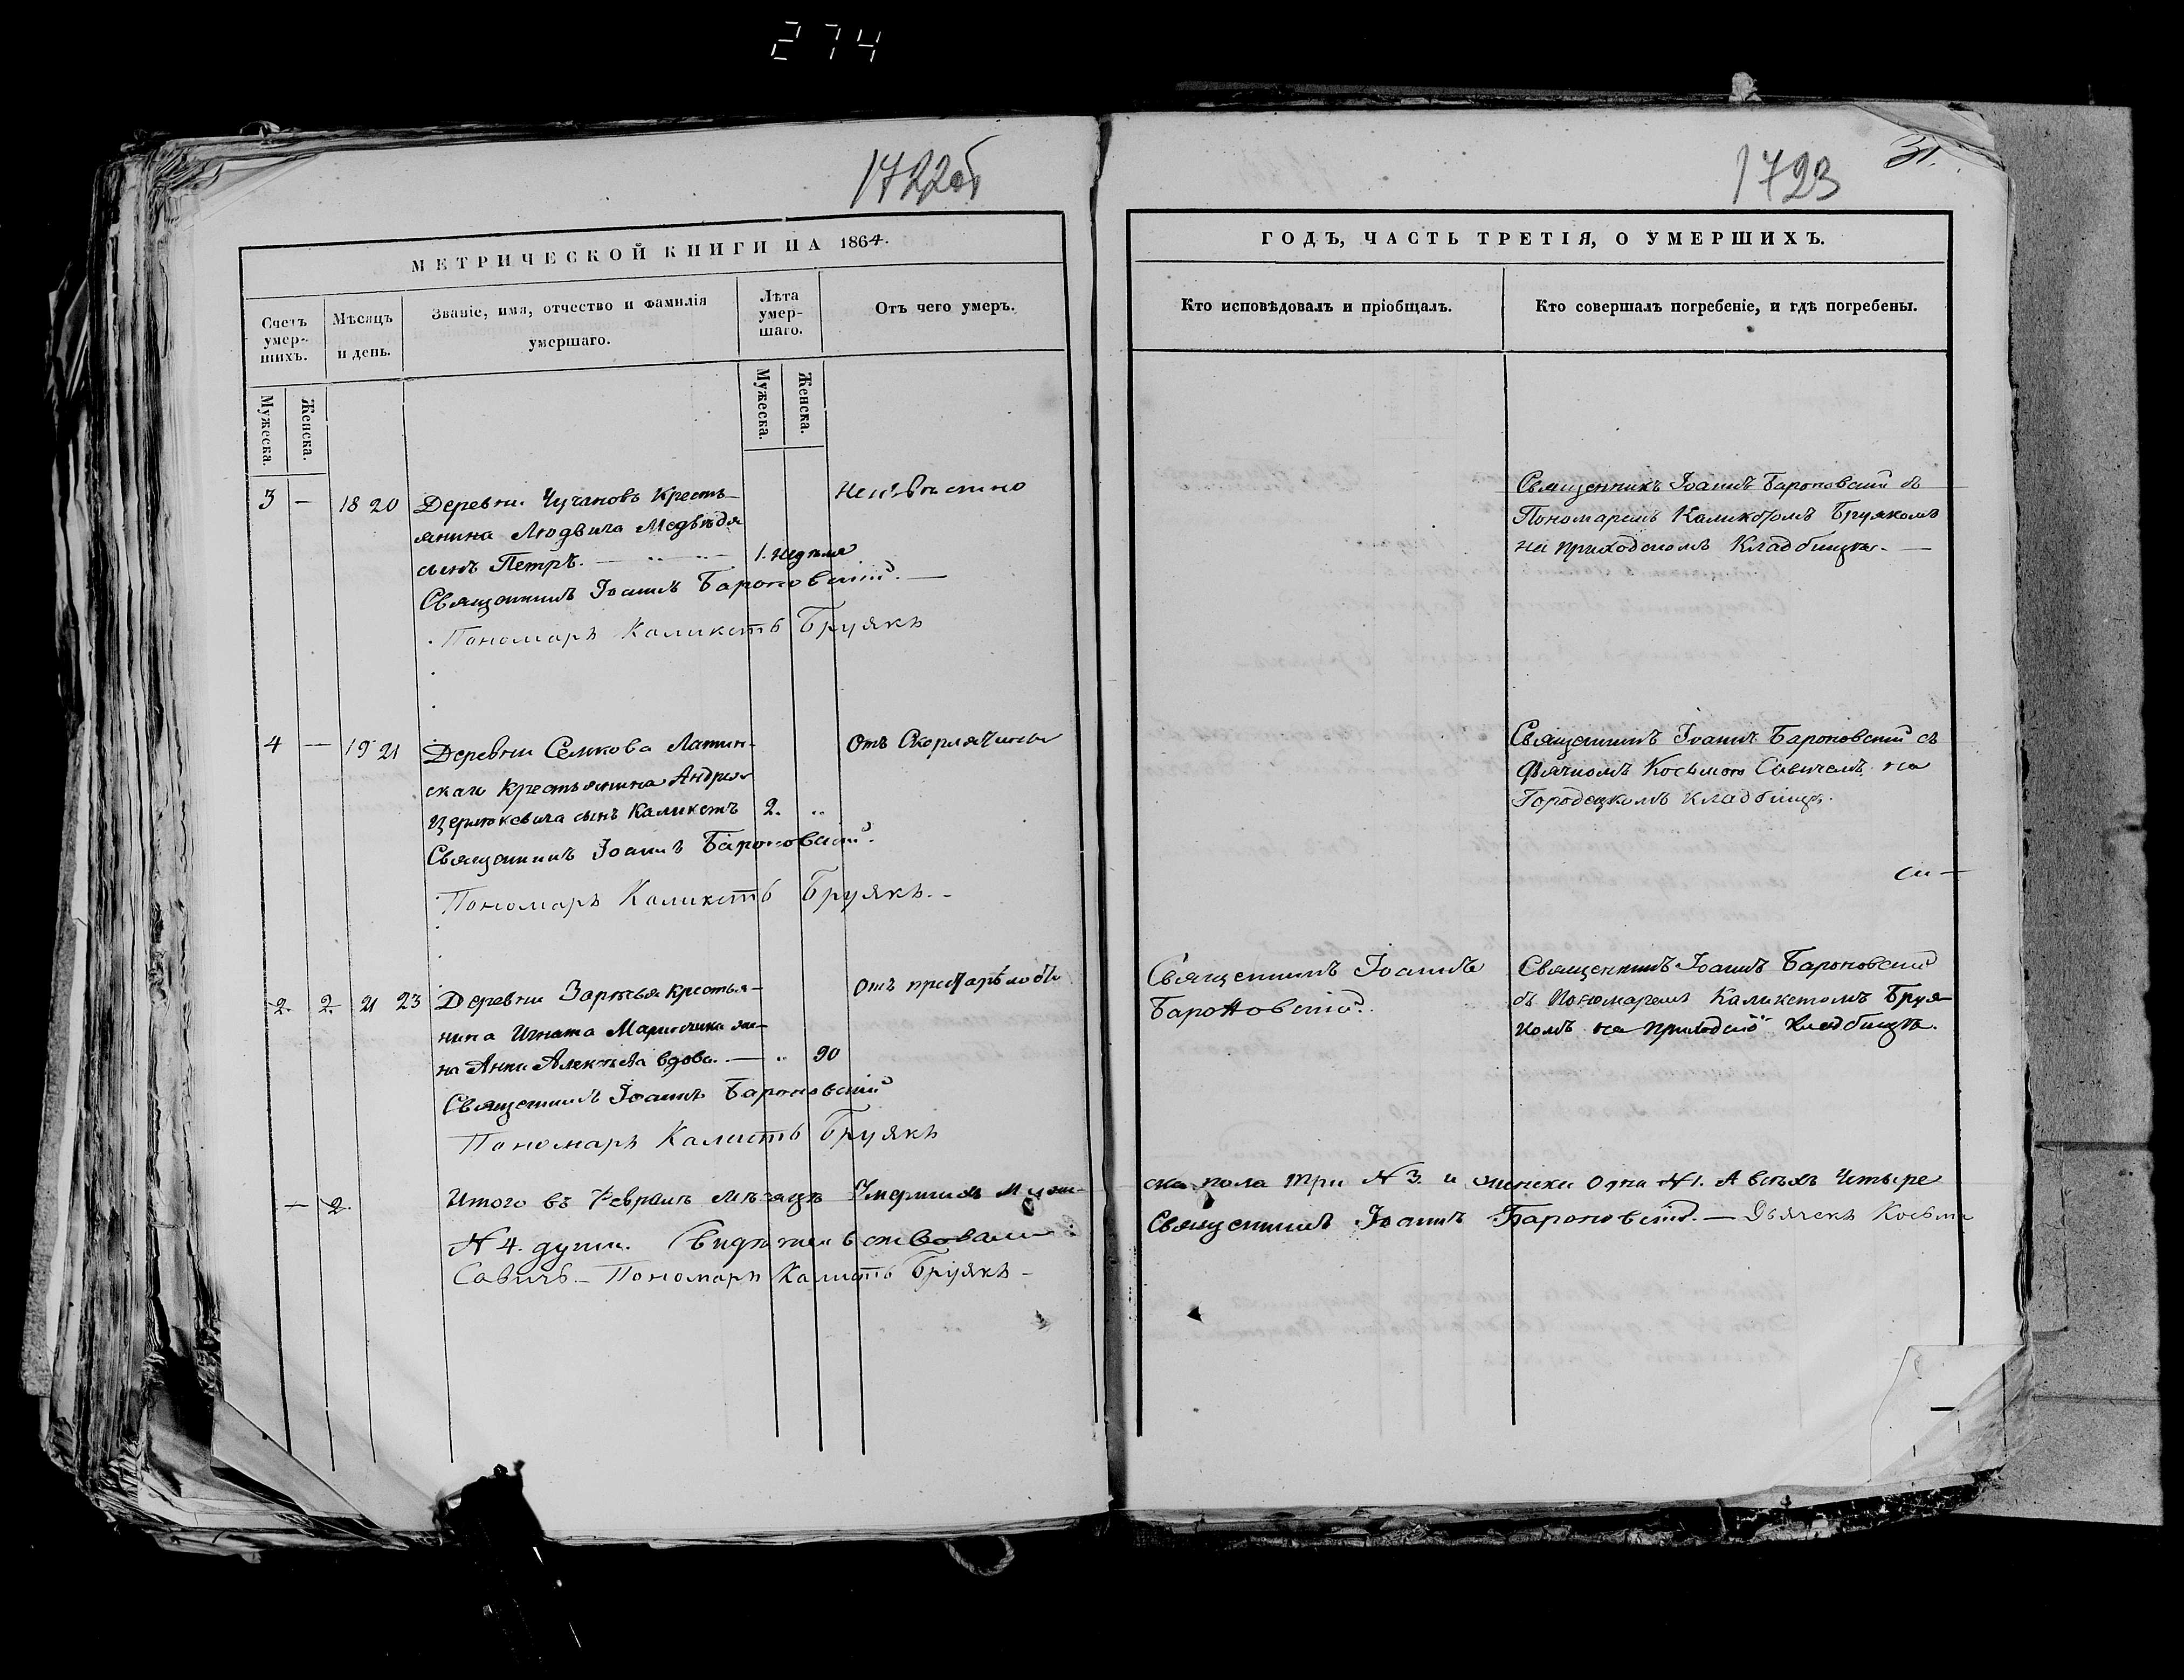 274
1722об
МЕТРИЧЕСКОЙ КНИГИ НА 1864.
Счетъ умер-шихъ.
Мѣсяцъ и день.
Званіе, имя, отчество и фамилія умершаго.
Лѣта умер-шаго.
Отъ чего умеръ.
Мужеска.
Женска.
Мужеска.
Женска.
3 — 18 20 Деревни Чучановъ Кресть- Неизвѣстно
янина Людвига Медвѣдя
сынъ Петръ. — 1. недѣля
Священникъ Іоаннъ Бароновскій. —
Пономарь Каликстъ Бруякъ
4 — 19 21 Деревни Селикова Латин- Отъ Скорлятины
скаго Крестьянина Андрея
сынъ Каликстъ 2. „
Священникъ Іоаннъ Бароновскій.
Пономарь Каликстъ Бруякъ. -
2. 2. 21 23 Деревни Заритья Крестья- Отъ престарѣлости
нина Игната Маринчика же-
на Анна Алексѣева вдова. — „ 90
Священникъ Іоаннъ Бароновскій
Пономарь Каликстъ Бруякъ
— 2. Итого въ Февралѣ мѣсяцѣ Умершихъ муже-
N 4. души. Свидѣтельствовали:
Савичъ. — Пономарь Каликстъ Бруякъ -
1723
31.
ГОДЪ, ЧАСТЬ ТРЕТІЯ, О УМЕРШИХЪ.
Кто исповѣдовалъ и пріобщалъ.
Кто совершалъ погребеніе, и гдѣ погребены.
Священникъ Іоаннъ Бароновскій съ
Пономаремъ Каликстомъ Бруякомъ
на приходскомъ Кладбищѣ. —
Священникъ Іоаннъ Бароновскій съ
Дьячкомъ Косьмою Савичемъ на
Городецкомъ кладбищѣ.
Священникъ Іоаннъ
Бароновскій.
Священникъ Іоаннъ Бароновскій
съ Пономаремъ Каликстомъ Бруя-
комъ на приходско Кладбищѣ.
ска пола три N 3. и женска одна N 1. А всѣхъ Четыре
Священникъ Іоаннъ Бароновскій. — Дьячекъ Косьма